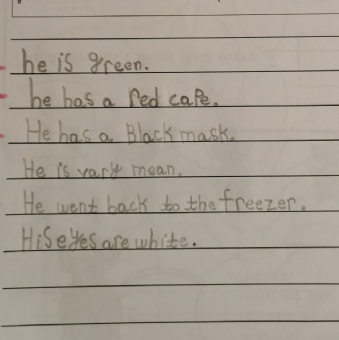 he is green.
he has a Red cape.
He has a Black mask.
He is vary mean.
He went back to the freezer.
His eyes are white.